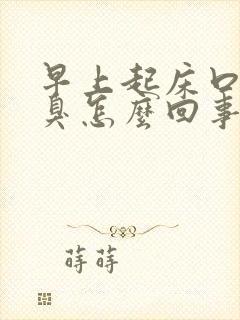 早上起床口
臭怎麼回事
蒔蒔